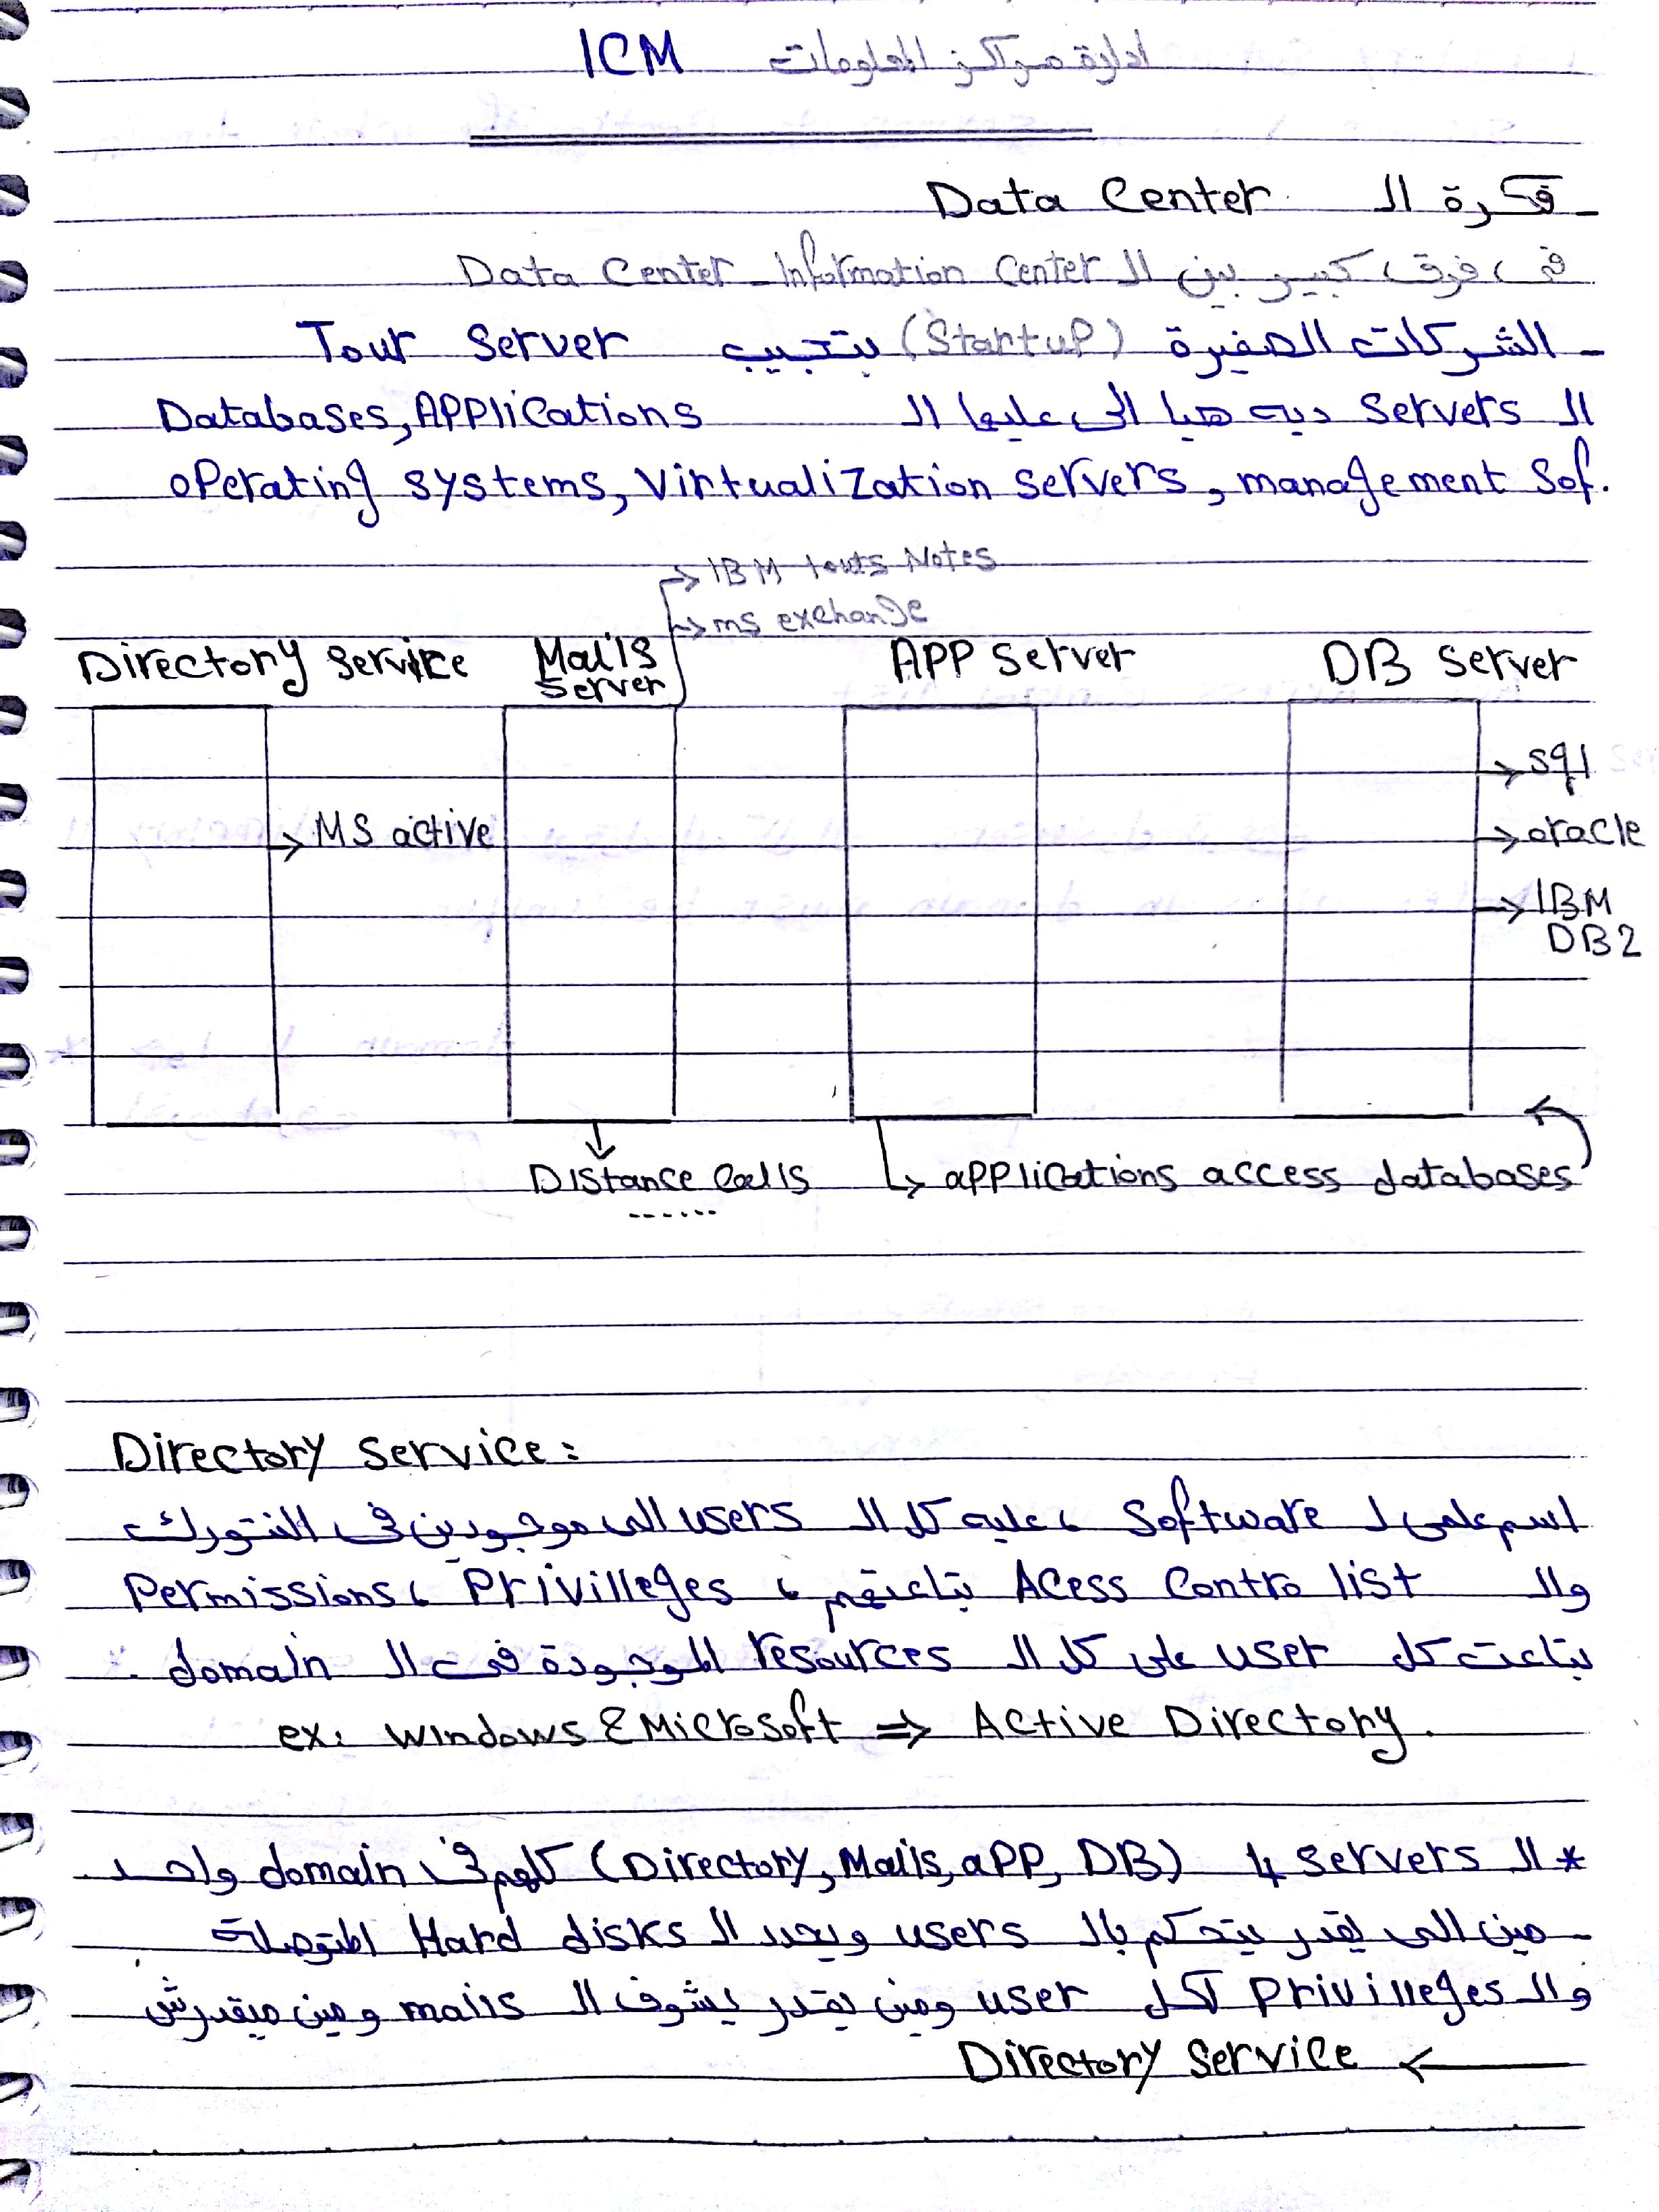 ادارة مراكز المعلومات ICM
- فكرة الـ Data Center
في فرق كبير بين الـ Data Center - Information Center
- الشركات الصغيرة (Startup) بتجيب Tour Server
الـ Servers ديه هيا الى عليها الـ Databases, Applications
operating systems, Virtualization servers, management Sof.
→ IBM Notes
→ ms exchange
Directory Service
Mails Server
APP Server
DB Server
→ sql
→ MS active
→ oracle
→ IBM DB2
Distance Calls
applications access databases
Directory Service:
اسم علمى لـ Software ، عليه كل الـ users الى موجودين فى النتورك
والـ Acess Contro list بتاعتهم ، Privilleges ، Permissions
بتاعت كل user على كل الـ resources الموجودة فى الـ domain .
ex: Windows & Microsoft ⇒ Active Directory.
* الـ 4 servers (Directory, Mails, app, DB) كلهم فى domain واحد
- مين الى يقدر يتحكم بالـ users ويحدد الـ Hard disks المتوصلة
والـ Privilleges لكل user ومين يقدر يشوف الـ mails ومين ميقدرش
← Directory Service